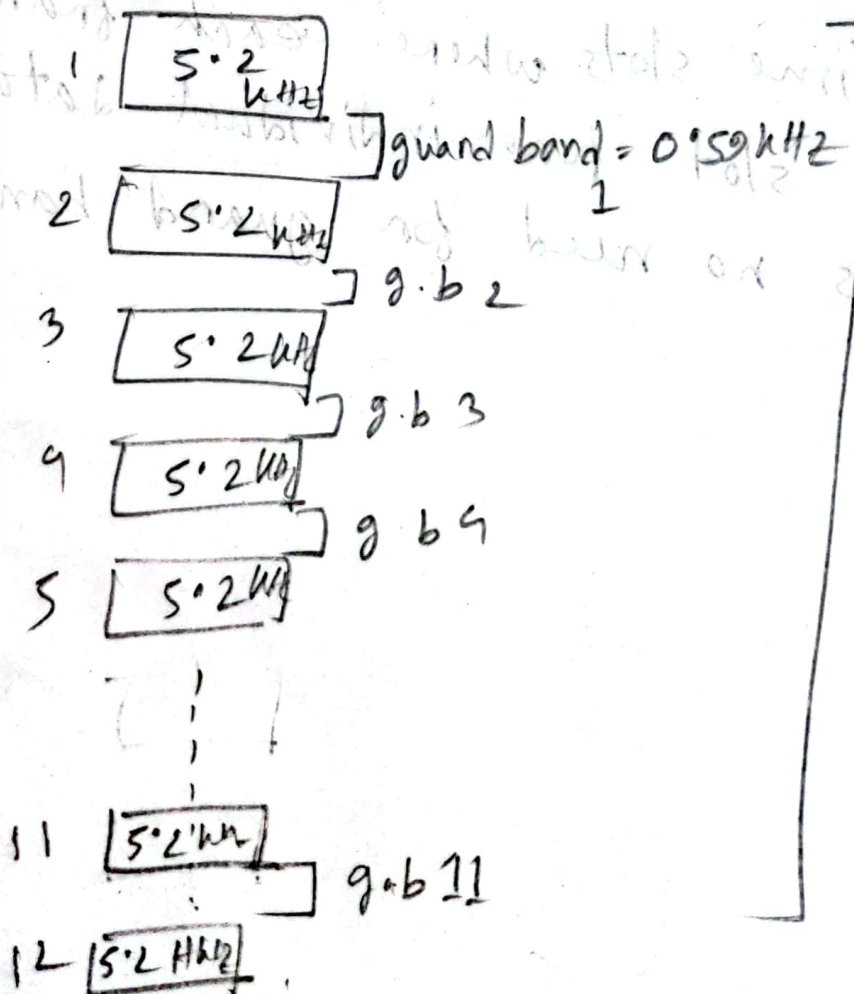 1 5.2 kHz
guard band 1 = 0.59 kHz
2 5.2 kHz
g.b 2
3 5.2 kHz
g.b 3
4 5.2 kHz
g b 4
5 5.2 kHz
11 5.2 kHz
g.b 11
12 5.2 Hkz